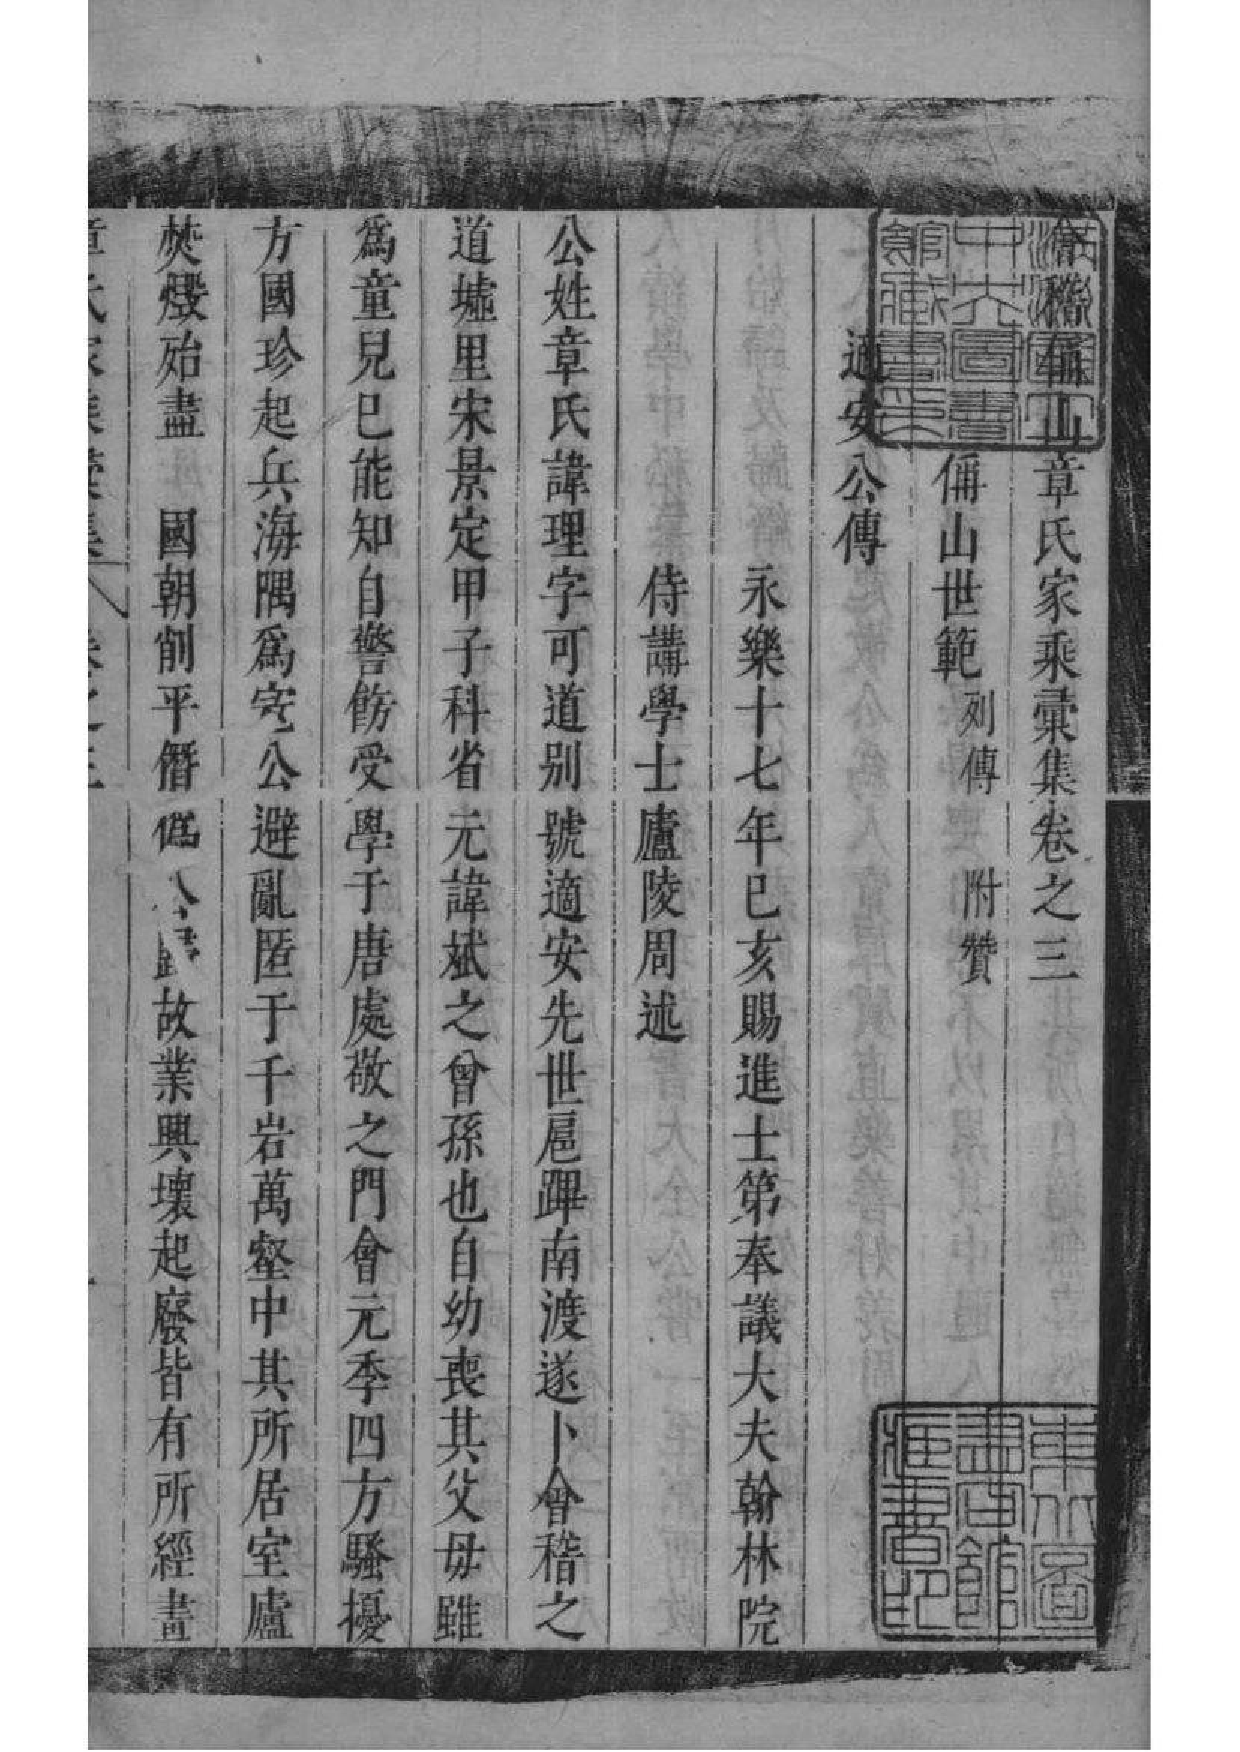 會稽偁山章氏家乘彚集卷之三
偁山世範 列傳 附贊
適安公傳
永樂十七年已亥賜進士第奉議大夫翰林院
侍講學士廬陵周述
公姓章氏諱理字可道别號適安先世扈蹕南渡遂卜會稽之
道墟里宋景定甲子科省元諱斌之曾孫也自幼喪其父毋雖
爲童兒已能知自警飭受學于唐處敬之門會元季四方騷擾
方國珍起兵海隅爲宼公避亂匿于千岩萬壑中其所居室廬
焚燬殆盡 國朝削平僭僞 歸故業興壞起廢皆有所經畫
章氏家乘彚集 卷之三
國立中央圖書館藏書章
東北圖書館藏書印